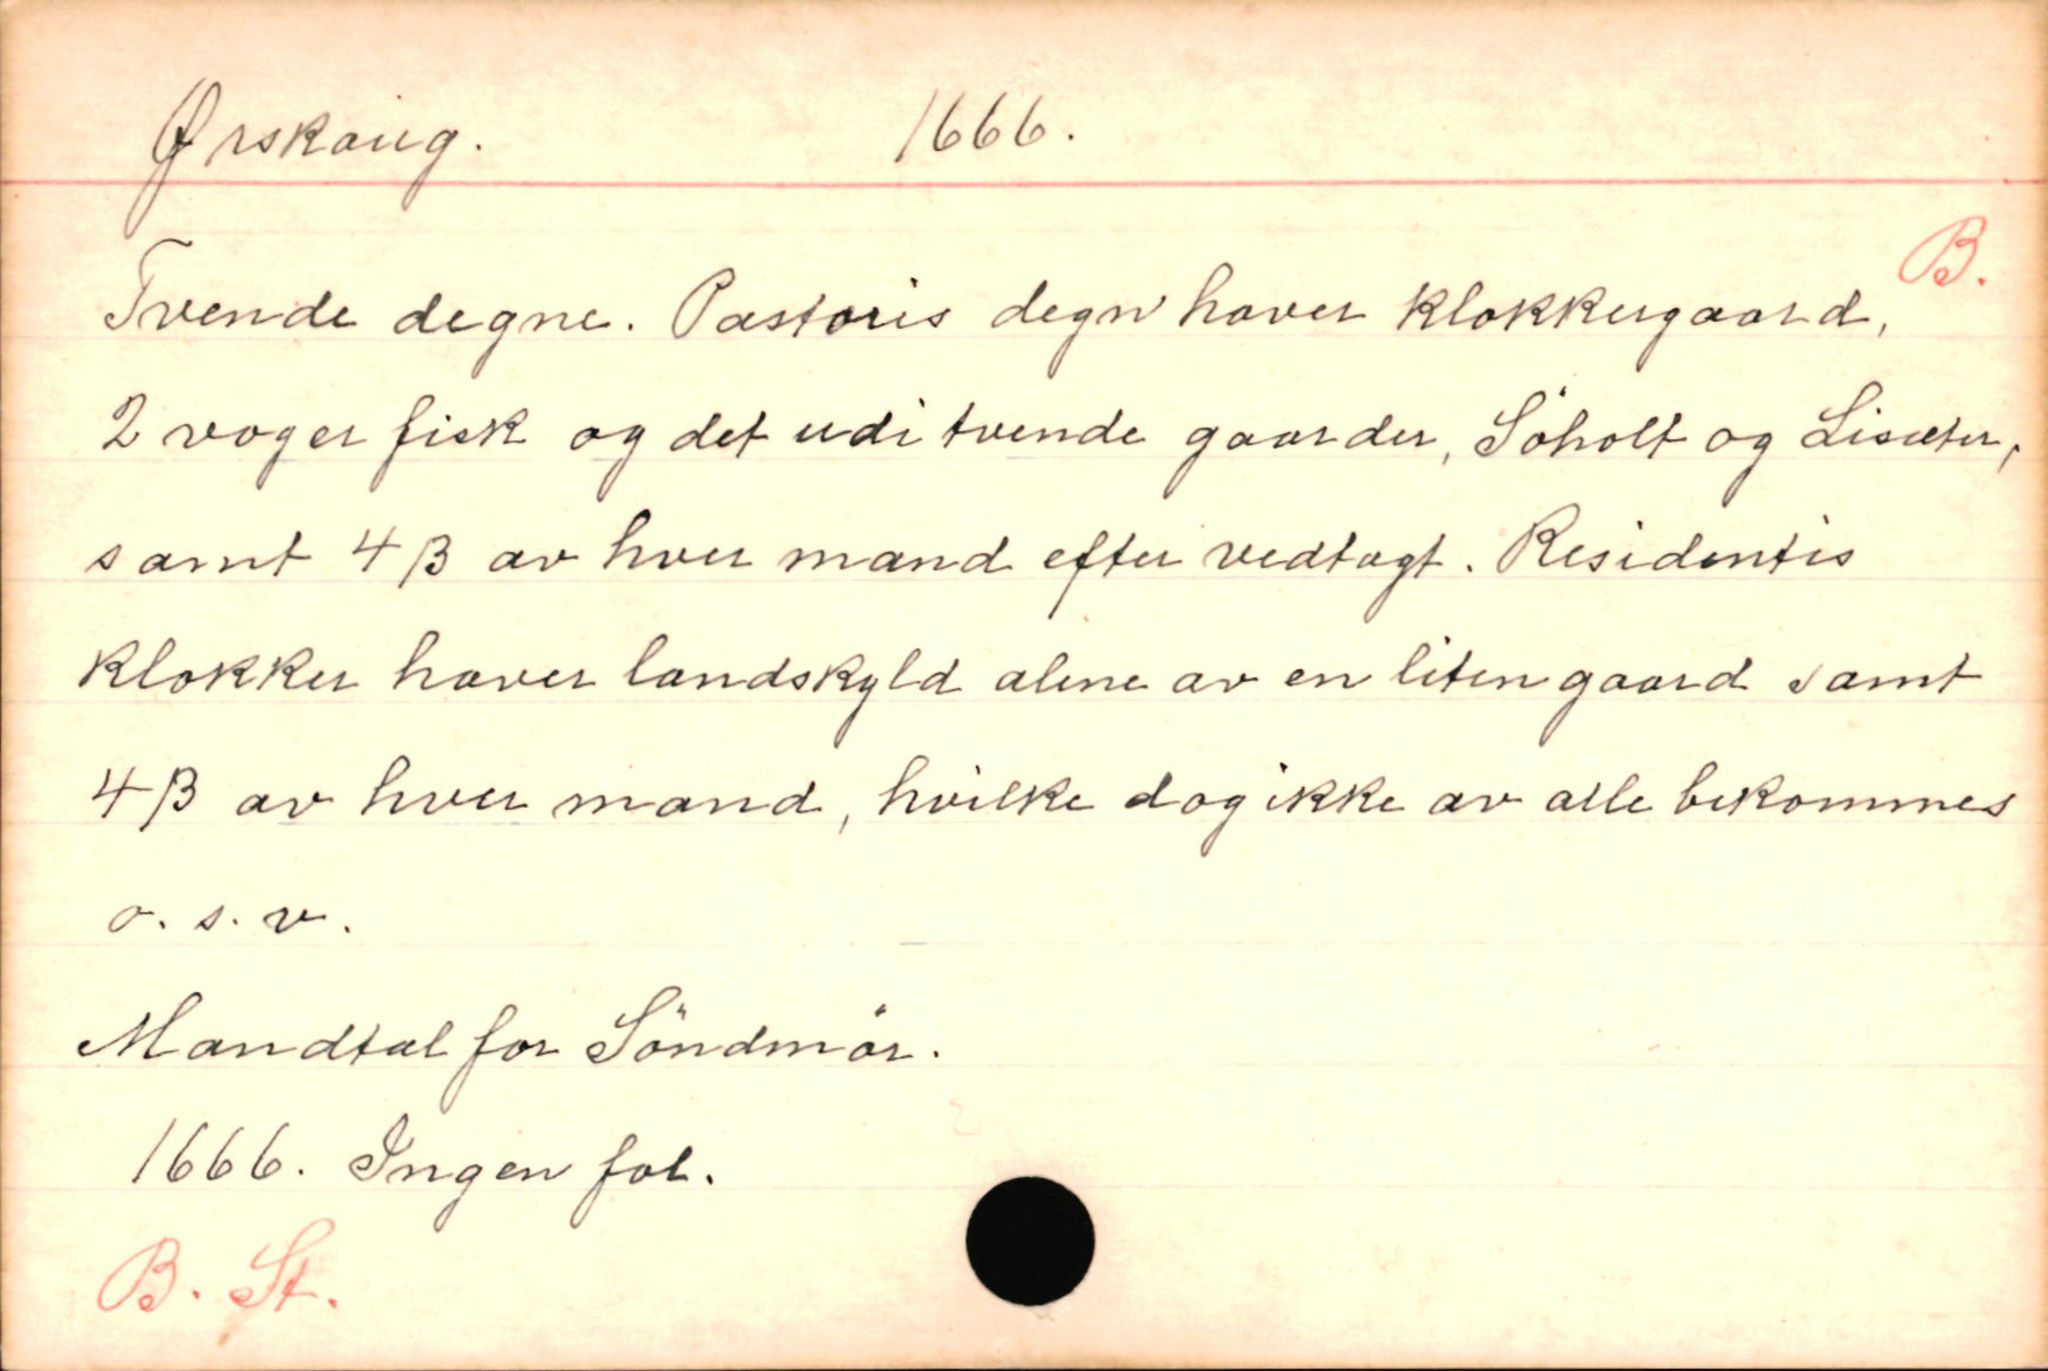 Ørskoug. 1666.
B.
Tvende degne. Pastoris degn haver klokkergaard,
2 voger fisk og det udi tvende gaarder, Söholt og Lisæter,
samt 4 β av hver mand efter vedtagt. Residentis
klokker haver landskyld alene av en liten gaard samt
4 β av hver mand, hvilke dog ikke av alle bekommes
o. s. v.
Mandtal for Söndmör.
1666. Ingen fol.
B. St.